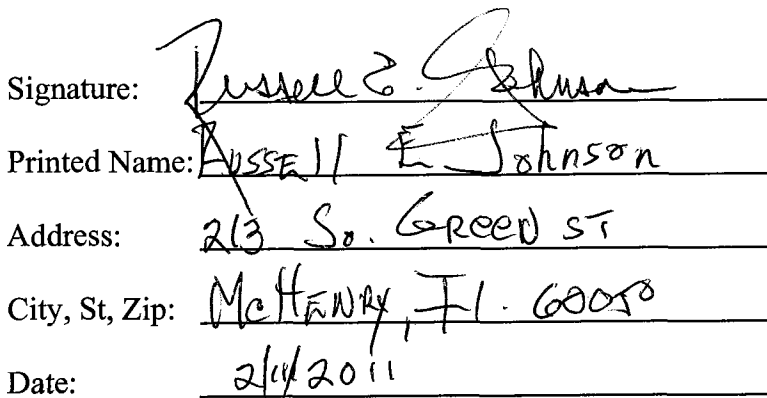 Signature: Russell E. Johnson
Printed Name: RussEll E Johnson
Address: 213 So. GReeN ST
City, St, Zip: McHENRY, Il. 60050
Date: 2/11/2011